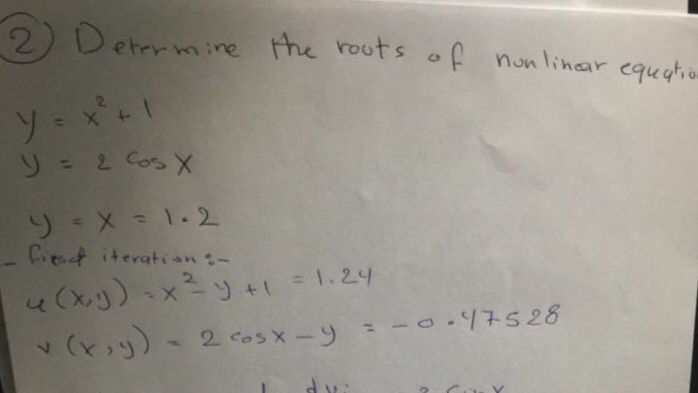 2 Determine the roots of nonlinear equatio
y = x² + 1
y = 2 Cos x
y = x = 1.2
- first iteration :-
u(x,y) = x² - y + 1 = 1.24
v(x,y) = 2 cosx - y = -0.47528